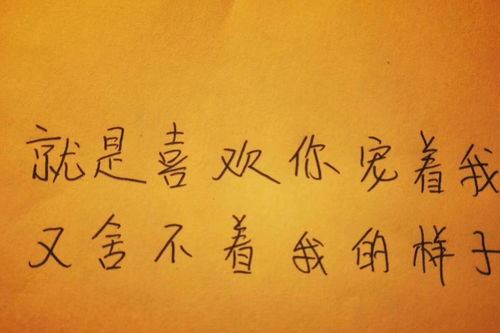 就是喜欢你宠着我
又舍不着我的样子